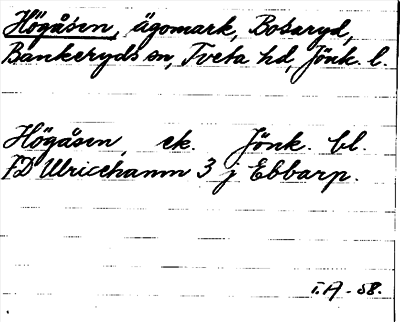 Högåsen, ägomark, Bosaryd,
Bankeryds sn, Tveta hd, Jönk. l.
Högåsen, ek. Jönk. bl.
7D Ulricehamn 3 j Ebbarp.
I.A -58.